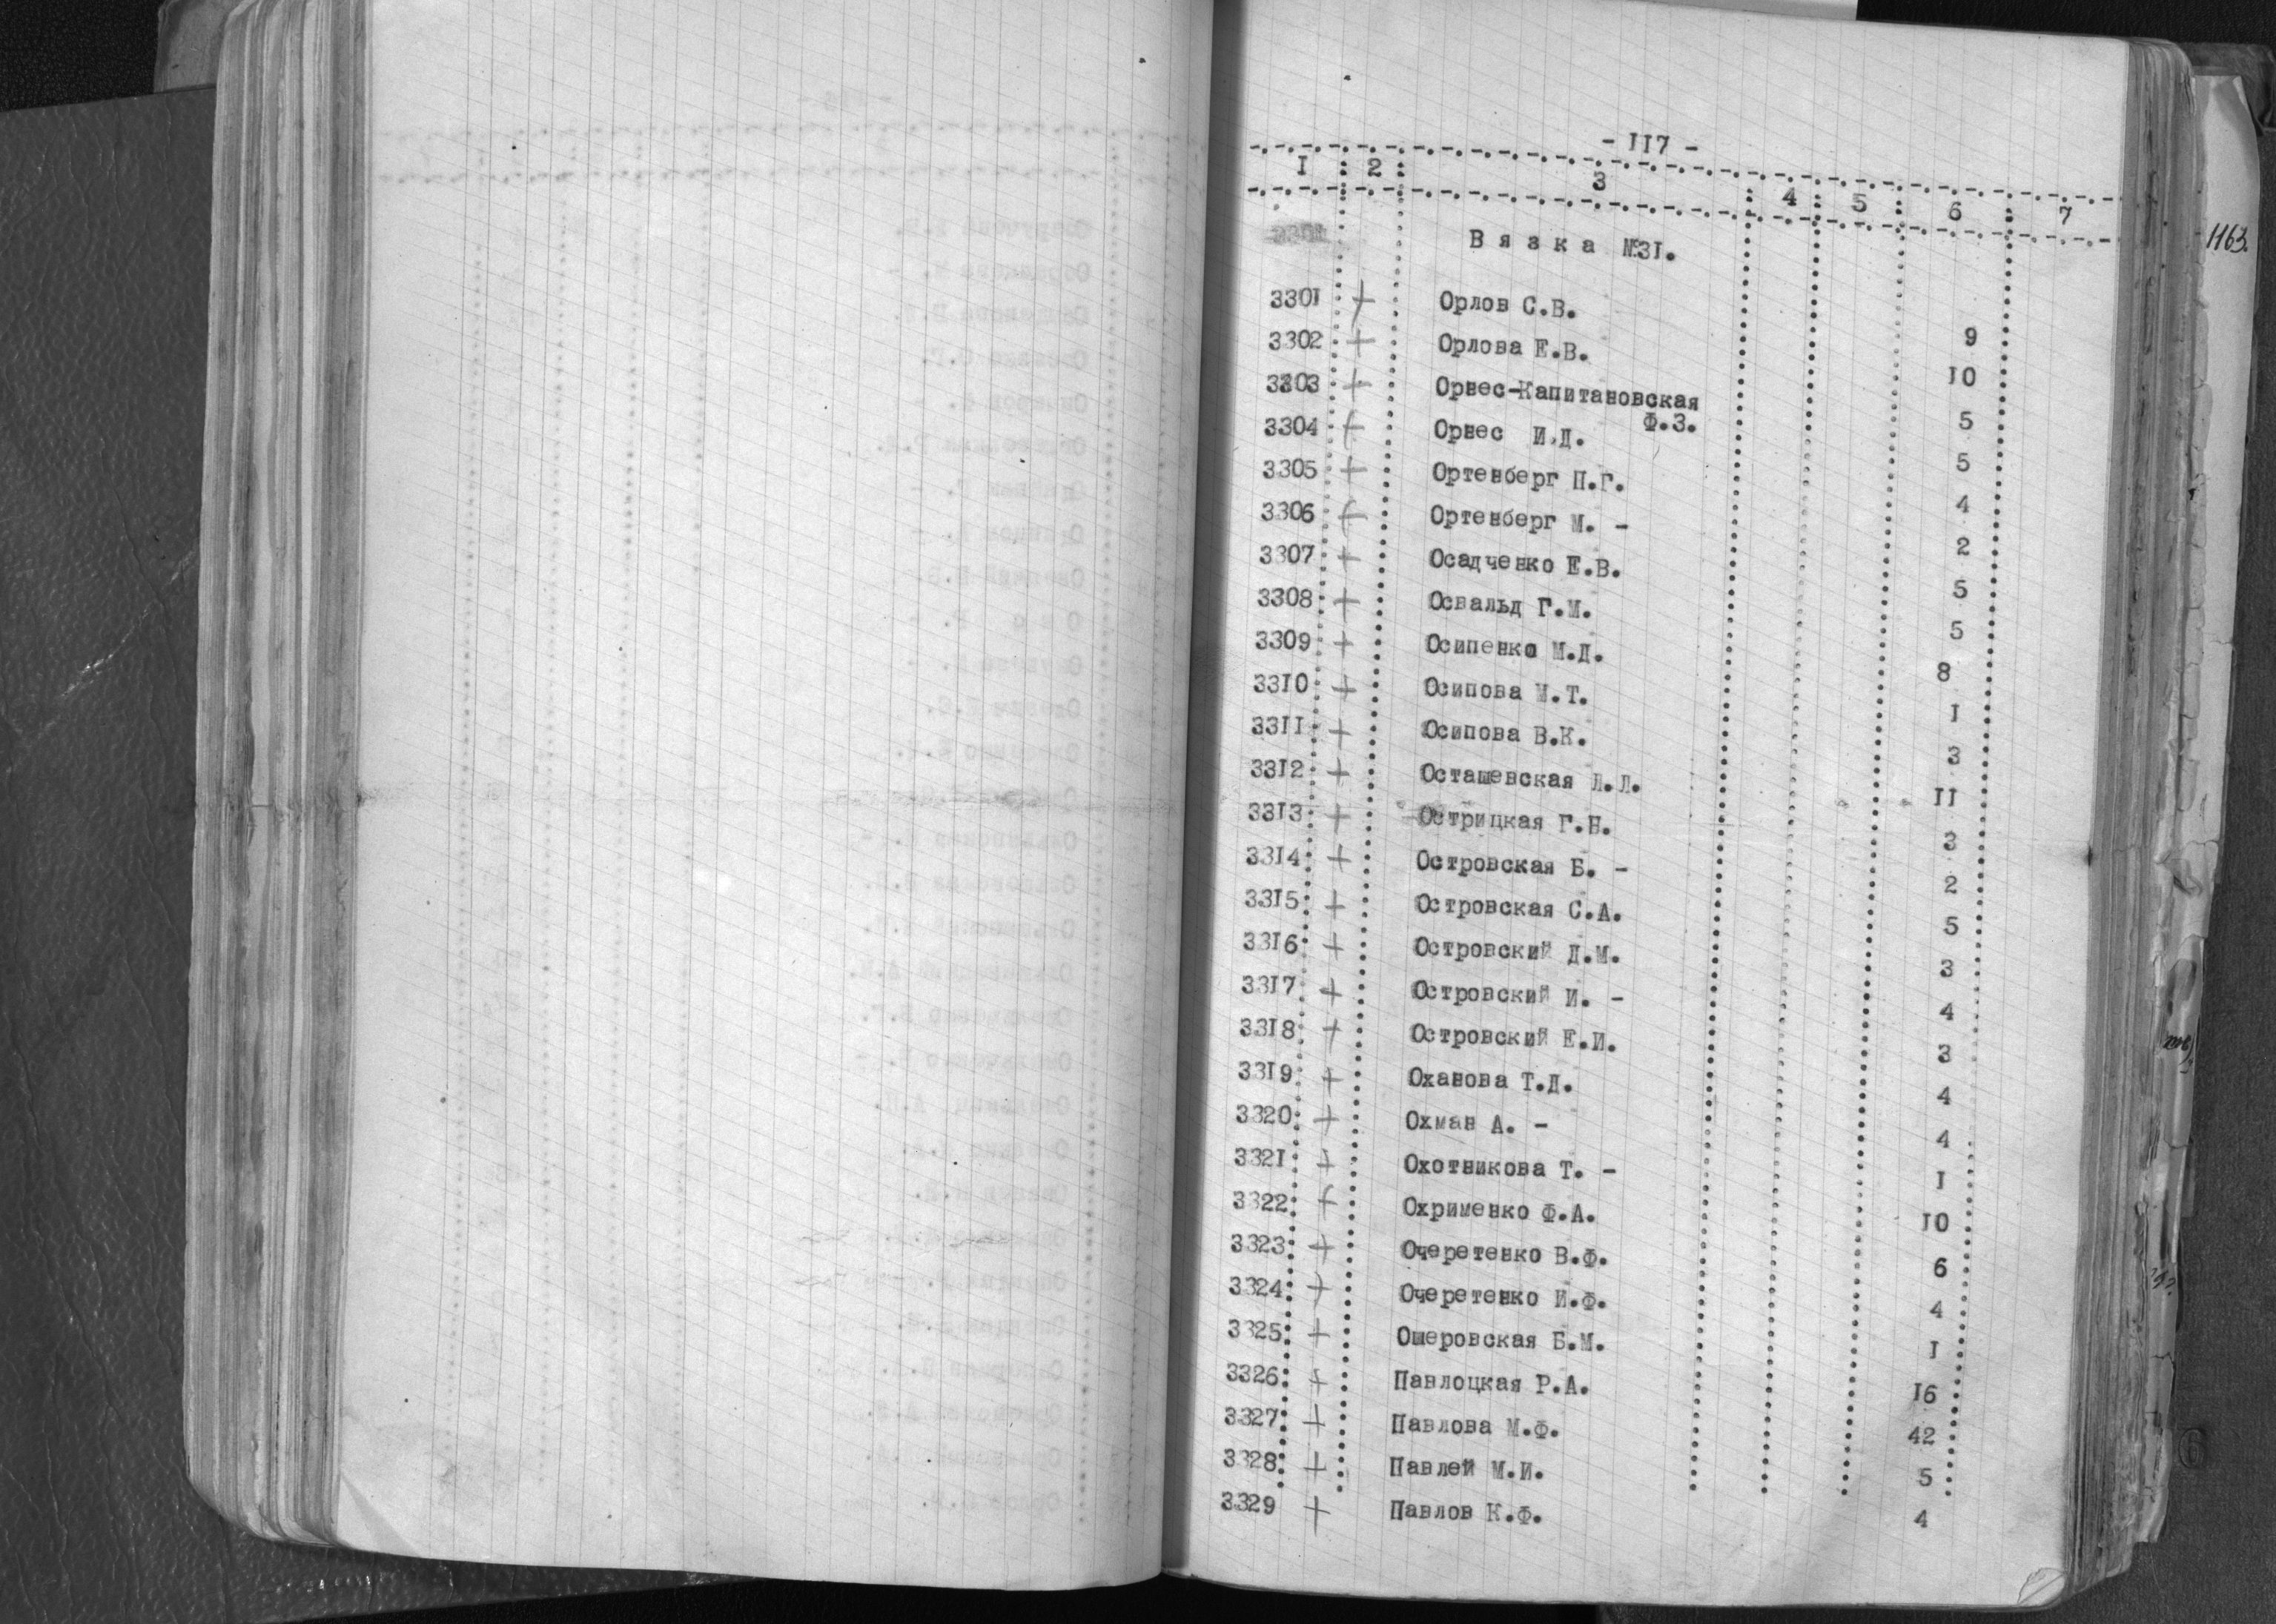 - II7 -
I 2 3 4 5 6 7
1163.
Вязка №3I.
330I + Орлов С.В. 9
3302 + Орлова Е.В. I0
3303 + Орнес-Капитановская 5
Ф.З.
3304 + Орнес И.Д. 5
3305 + Ортенберг П.Г. 4
3306 + Ортенберг М. - 2
3307 + Осадченко Е.В. 5
3308 + Освальд Г.М. 5
3309 + Осипенко М.Д. 8
33I0 + Осипова М.Т. I
33II + Осипова В.К. 3
33I2 + Осташевская Л.Л. II
33I3 + Острицкая Г.Н. 3
33I4 + Островская Б. - 2
33I5 + Островская С.А. 5
33I6 + Островский Д.М. 3
33I7 + Островский И. - 4
33I8 + Островский Е.И. 3
33I9 + Оханова Т.Д. 4
3320 + Охман А. - 4
332I + Охотникова Т. - I
3322 + Охрименко Ф.А. I0
3323 + Очеретенко В.Ф. 6
3324 + Очеретенко И.Ф. 4
3325 + Ошеровская Б.М. I
3326 + Павлоцкая Р.А. I6
3327 + Павлова М.Ф. 42
3328 + Павлей М.И. 5
3329 + Павлов К.Ф. 4